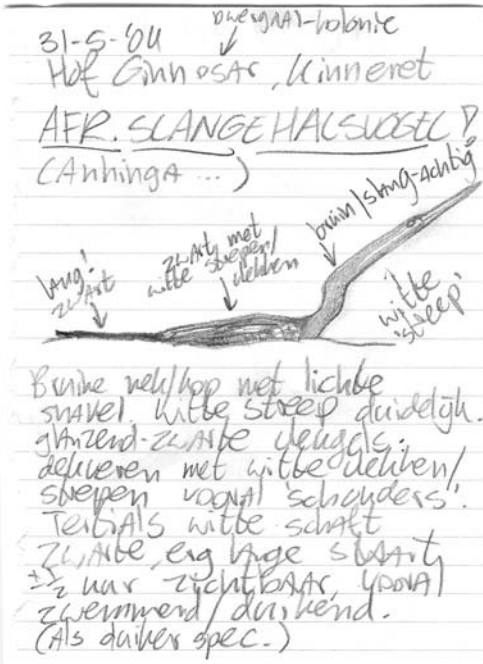 dwergAAl-kolonie
31-5-'04
Hof Ginnosar, Kinneret
AFR. SLANGEHALSVOGEL!
(Anhinga ...)
bruin/slang-Achtig
zwart met
witte strepen/
vlekken
lang!
zwart
witte
'streep'
Bruine nek/kop met lichte
snavel. Witte streep duidelijk.
glanzend-zwarte vleugels.
dekveren met witte vlekken/
strepen vooral 'schouders'.
Tertials witte schaft
zwarte, erg lange staart,
± ½ uur zichtbaar, vooral
zwemmend/duikend.
(Als duiker spec.)